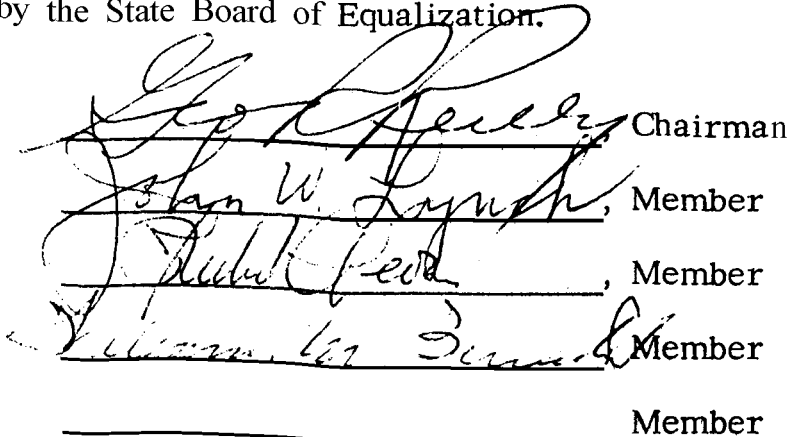 by the State Board of Equalization.
Geo R Reilly, Chairman
John W. Lynch, Member
, Member
William M. Member
Member